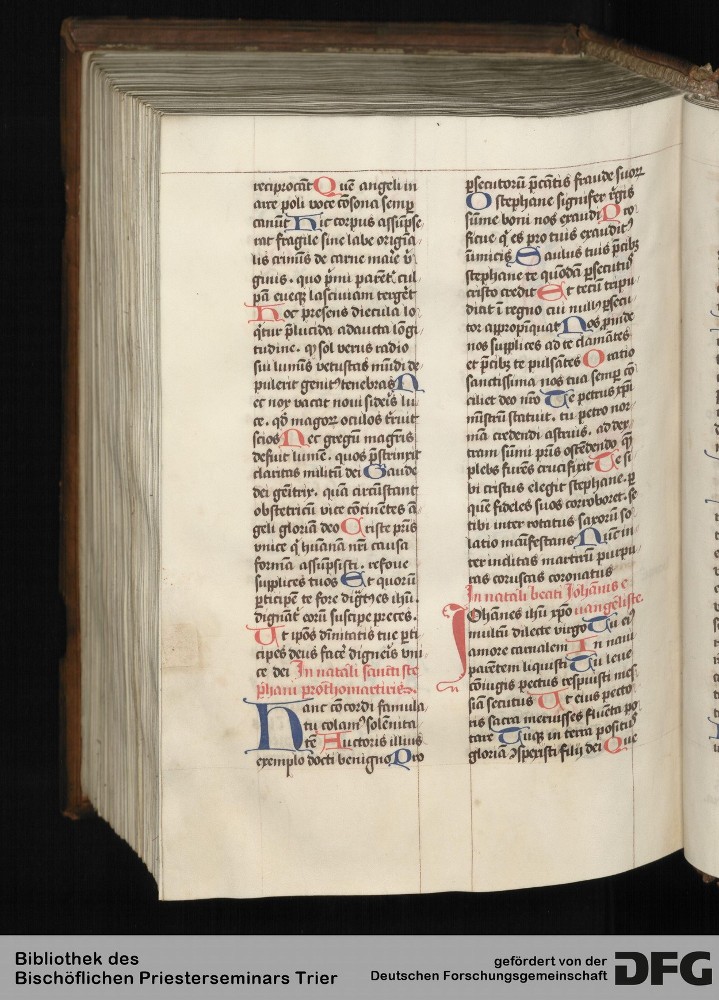 reciprocāt Quē angeli in
aire poli voce cōsona semp
canūt Hic corpus assūpse
rat fragile sine labe origīa
lis crimīs de carne marie v̄
ginis. quo pͥmi parēt̄ cul
pā eueqꝫ lasciuiam tergēt
Hoc presens diecula lo
qͥtur p̄lucida adaucta lōgi
tudine. qͩ sol verus radio
sui lumīs vetustas mūdi de
pulerit genitꝰ tenebras N
ec nox vacat noui sideris lu
ce. qd̄ magorꝝ oculos t̄ruit
scios Nec gregū magr̄is
defuit lumē. quos p̄strinxit
claritas militū dei Gaude
dei geīt̄rix. quā circūstant
obstetricū vice cōcinētes ā
geli gloriam deo Criste pr̄is
vnice qͥ huānā nr̄i causa
formā assūpsisti. refoue
supplices tuos Et quorū
pticipē te fore diḡtꝰ es ihū.
dignāt̄ eorū suscipe preces.
Ut ipōs dīnitatis tue pti
cipes deus facē digneris vni
ce dei In natali sancti ste
phani prothomartiris.
Hanc cōcordi famula
tu colamꝰ solēnita
tē Auctoris illius
exemplo docti benigno Pro
psecutorū p̄cātis fraude suorꝝ
O stephane signifer r̄gis
sūme boni nos exaudi Pro
ficue qͥ es pro tuis exauditꝰ
inimicis Paulus tuis p̄cibꝫ
stephane te quōdā psecutꝰ
cristo credit Et tecū tripu
diat ī regno cui nullꝰ psecu
tor appropīquat Nos pinde
nos supplices ad te clamātes
et p̄cibꝫ te pulsātes Oratio
sanctissima nos tua semp cō
ciliet deo nr̄o Te petrus xp̄i
mīstrū statuit. tu petro nor
mā credendi astruis. ad dex
tram sūmi pr̄is ostēdendo qͣꝫ
plebs furēs crucifixit Te si
bi cristus elegit stephane. p
quē fideles suos corroboret. se
tibi inter rotatus saxorū so
latio māifestans Nūc in
ter inclitas martirū purpu
ras coruscas coronatus
In natali beati Johānis e
Johānes ihū xp̄o uangeliste.
multū dilecte virgo Tu eiꝰ
amore carnalem In naui
parētem liquisti Tu leue
cōiugis pectus respuisti mes
siā secutus Ut eius pecto
ris sacra meruisses fluēta po
tare Tuqꝫ in terra positus
gloriā ꝯspexisti filij dei Que
Bibliothek des
Bischöflichen Priesterseminars Trier
gefördert von der
Deutschen Forschungsgemeinschaft
DFG